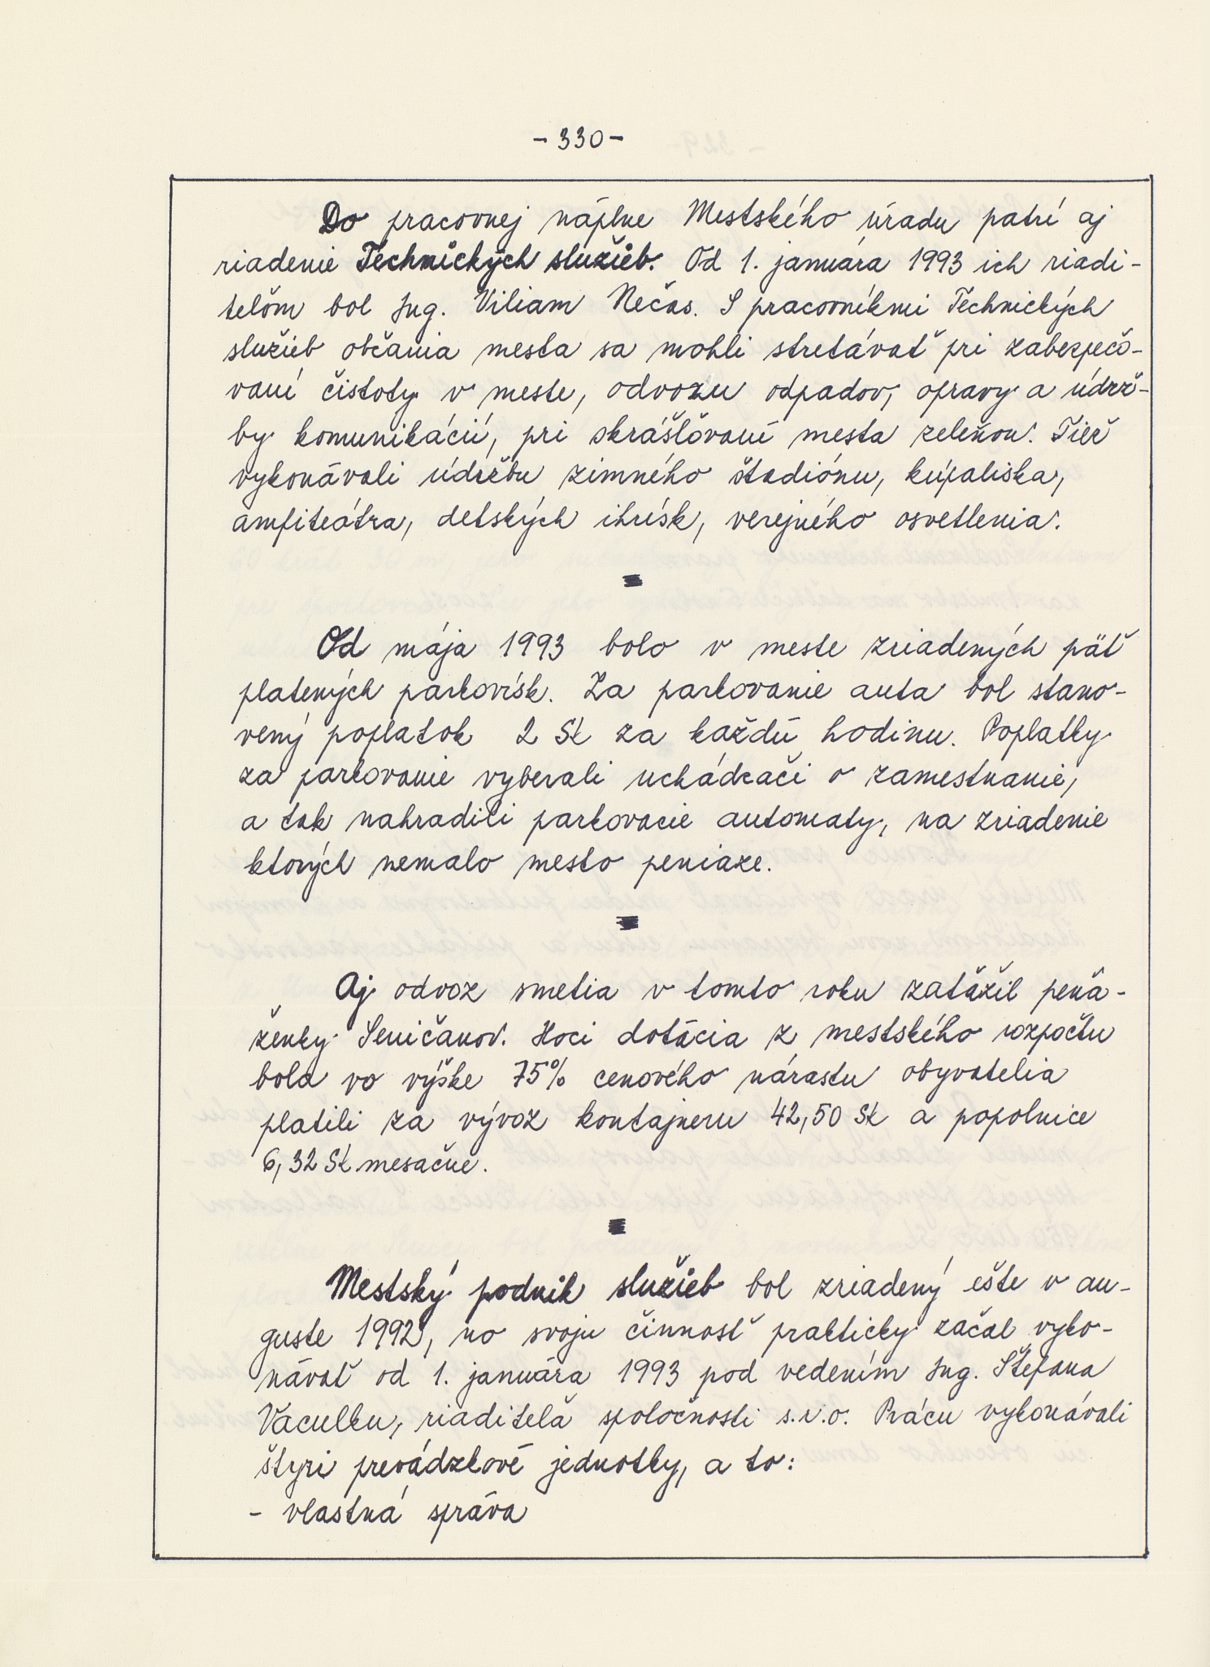 - 330 -
Do pracovnej náplne Mestského úradu patrí aj
riadenie Technických služieb. Od 1. januára 1993 ich riadi-
teľom bol Ing. Viliam Nečas. S pracovníkmi Technických
služieb občania mesta sa mohli stretávať pri zabezpečo-
vaní čistoty v meste, odvozu odpadov, opravy a údrž-
by komunikácií, pri skrášľovaní mesta zeleňou. Tiež
vykonávali údržbu zimného štadiónu, kúpaliska,
amfiteátra, detských ihrísk, verejného osvetlenia.
Od mája 1993 bolo v meste zriadených päť
platených parkovísk. Za parkovanie auta bol stano-
vený poplatok 2 Sk za každú hodinu. Poplatky
za parkovanie vyberali uchádzači o zamestnanie,
a tak nahradili parkovacie automaty, na zriadenie
ktorých nemalo mesto peniaze.
Aj odvoz smetia v tomto roku zaťažil peňa-
ženky Seničanov. Hoci dotácia z mestského rozpočtu
bola vo výške 75% cenového nárastu obyvatelia
platili za vývoz kontajneru 42,50 Sk a popolnice
6,32 Sk mesačne.
Mestský podnik služieb bol zriadený ešte v au-
guste 1992, no svoju činnosť prakticky začal vyko-
návať od 1. januára 1993 pod vedením Ing. Štefana
Vaculku, riaditeľa spoločnosti s.r.o. Prácu vykonávali
štyri prevádzkové jednotky, a to:
- vlastná správa